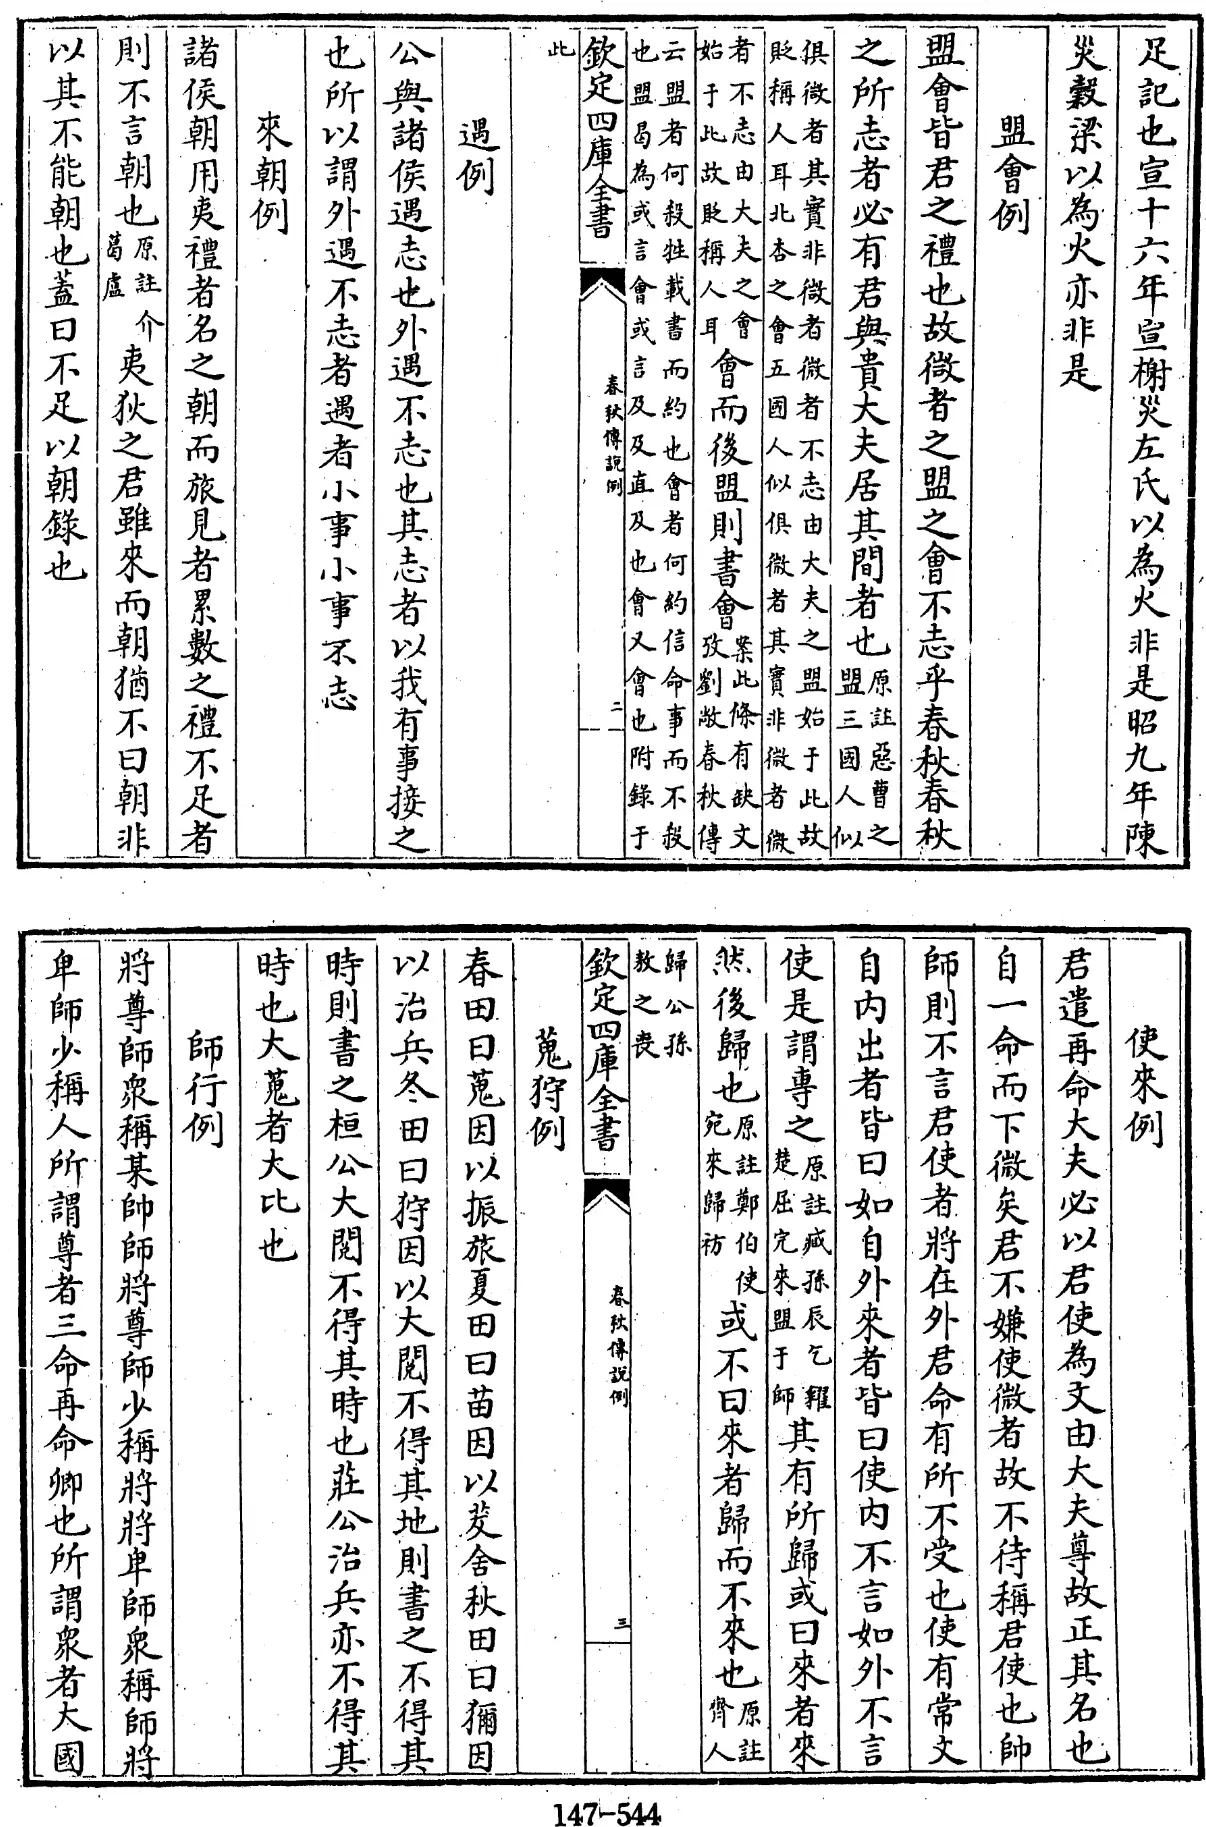 足記也宣十六年宣榭災左氏以為火非是昭九年陳
災穀梁以為火亦非是
盟會例
盟會皆君之禮也故微者之盟之會不志乎春秋春秋
之所志者必有君與貴大夫居其間者也原註惡曹之
盟三國人似
俱微者其實非微者微者不志由大夫之盟始于此故
貶稱人耳北杏之會五國人似俱微者其實非微者微
者不志由大夫之會
始于此故貶稱人耳會而後盟則書會案此條有缺文
攷劉敞春秋傳
云盟者何殺牲載書而約也會者何約信命事而不殺
也盟曷為或言會或言及及直及也會又會也附錄于
欽定四庫全書
春秋傳說例
二
此
遇例
公與諸侯遇志也外遇不志也其志者以我有事接之
也所以謂外遇不志者遇者小事小事不志
來朝例
諸侯朝用夷禮者名之朝而旅見者累數之禮不足者
則不言朝也原註介
葛盧夷狄之君雖來而朝猶不曰朝非
以其不能朝也蓋曰不足以朝錄也
使來例
君遣再命大夫必以君使為文由大夫尊故正其名也
自一命而下微矣君不嫌使微者故不待稱君使也帥
師則不言君使者將在外君命有所不受也使有常文
自內出者皆曰如自外來者皆曰使內不言如外不言
使是謂專之原註臧孫辰乞糴
楚屈完來盟于師其有所歸或曰來者來
然後歸也原註鄭伯使
宛來歸祊或不曰來者歸而不來也原註
齊人
歸公孫
敖之喪
欽定四庫全書
春秋傳說例
三
蒐狩例
春田曰蒐因以振旅夏田曰苗因以茇舍秋田曰獮因
以治兵冬田曰狩因以大閱不得其地則書之不得其
時則書之桓公大閱不得其時也莊公治兵亦不得其
時也大蒐者大比也
師行例
將尊師衆稱某帥師將尊師少稱將將卑師衆稱師將
卑師少稱人所謂尊者三命再命卿也所謂衆者大國
147-544